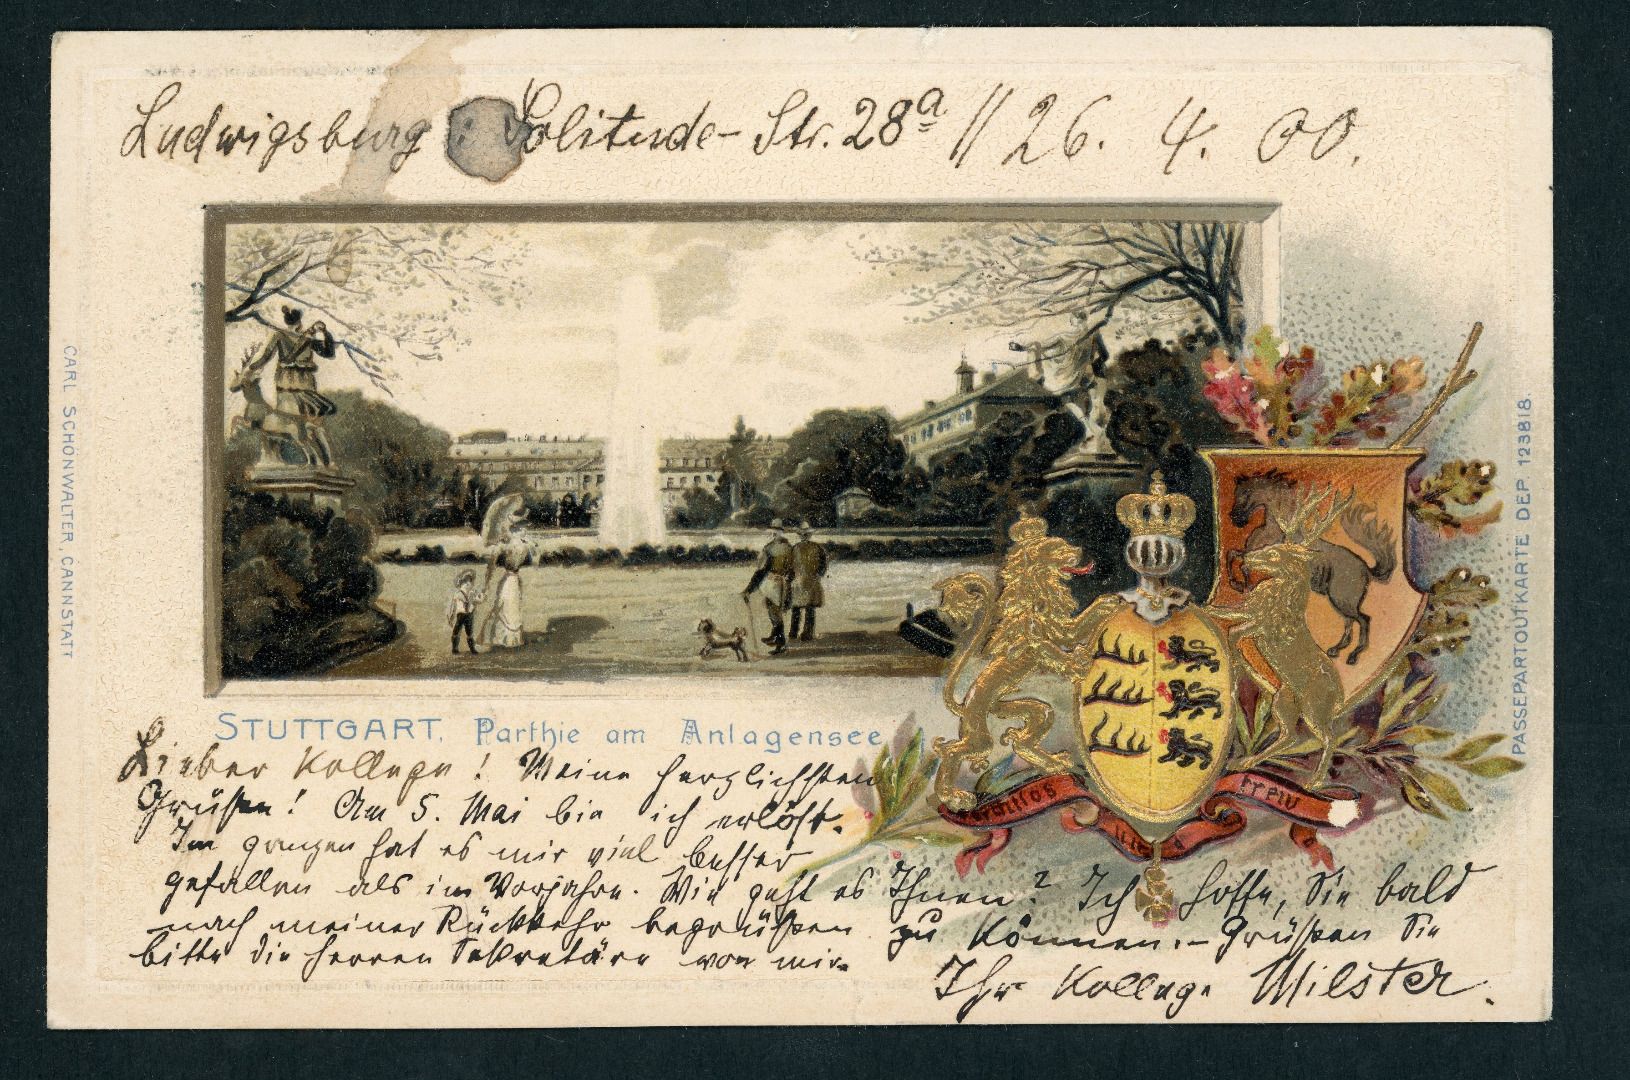 Ludwigsburg : Solitude-Str. 28a // 26. 4. 00.
CARL SCHÖNWALTER, CANNSTATT
PASSEPARTOUTKARTE DEP. 123818.
STUTTGART. Parthie am Anlagensee
furchtlos
und
trew
Lieber Kollege! Meine herzlichsten
Grüßen! Am 5. Mai bin ich erlöst.
Im ganzen hat es mir viel besser
gefallen als im Vorjahre. Wie geht es Ihnen? Ich hoffe, Sie bald
nach meiner Rückkehr begrüßen zu können.- Grüßen Sie
bitte die Herren Sekretäre von mir.
Ihr Kollege Milster.